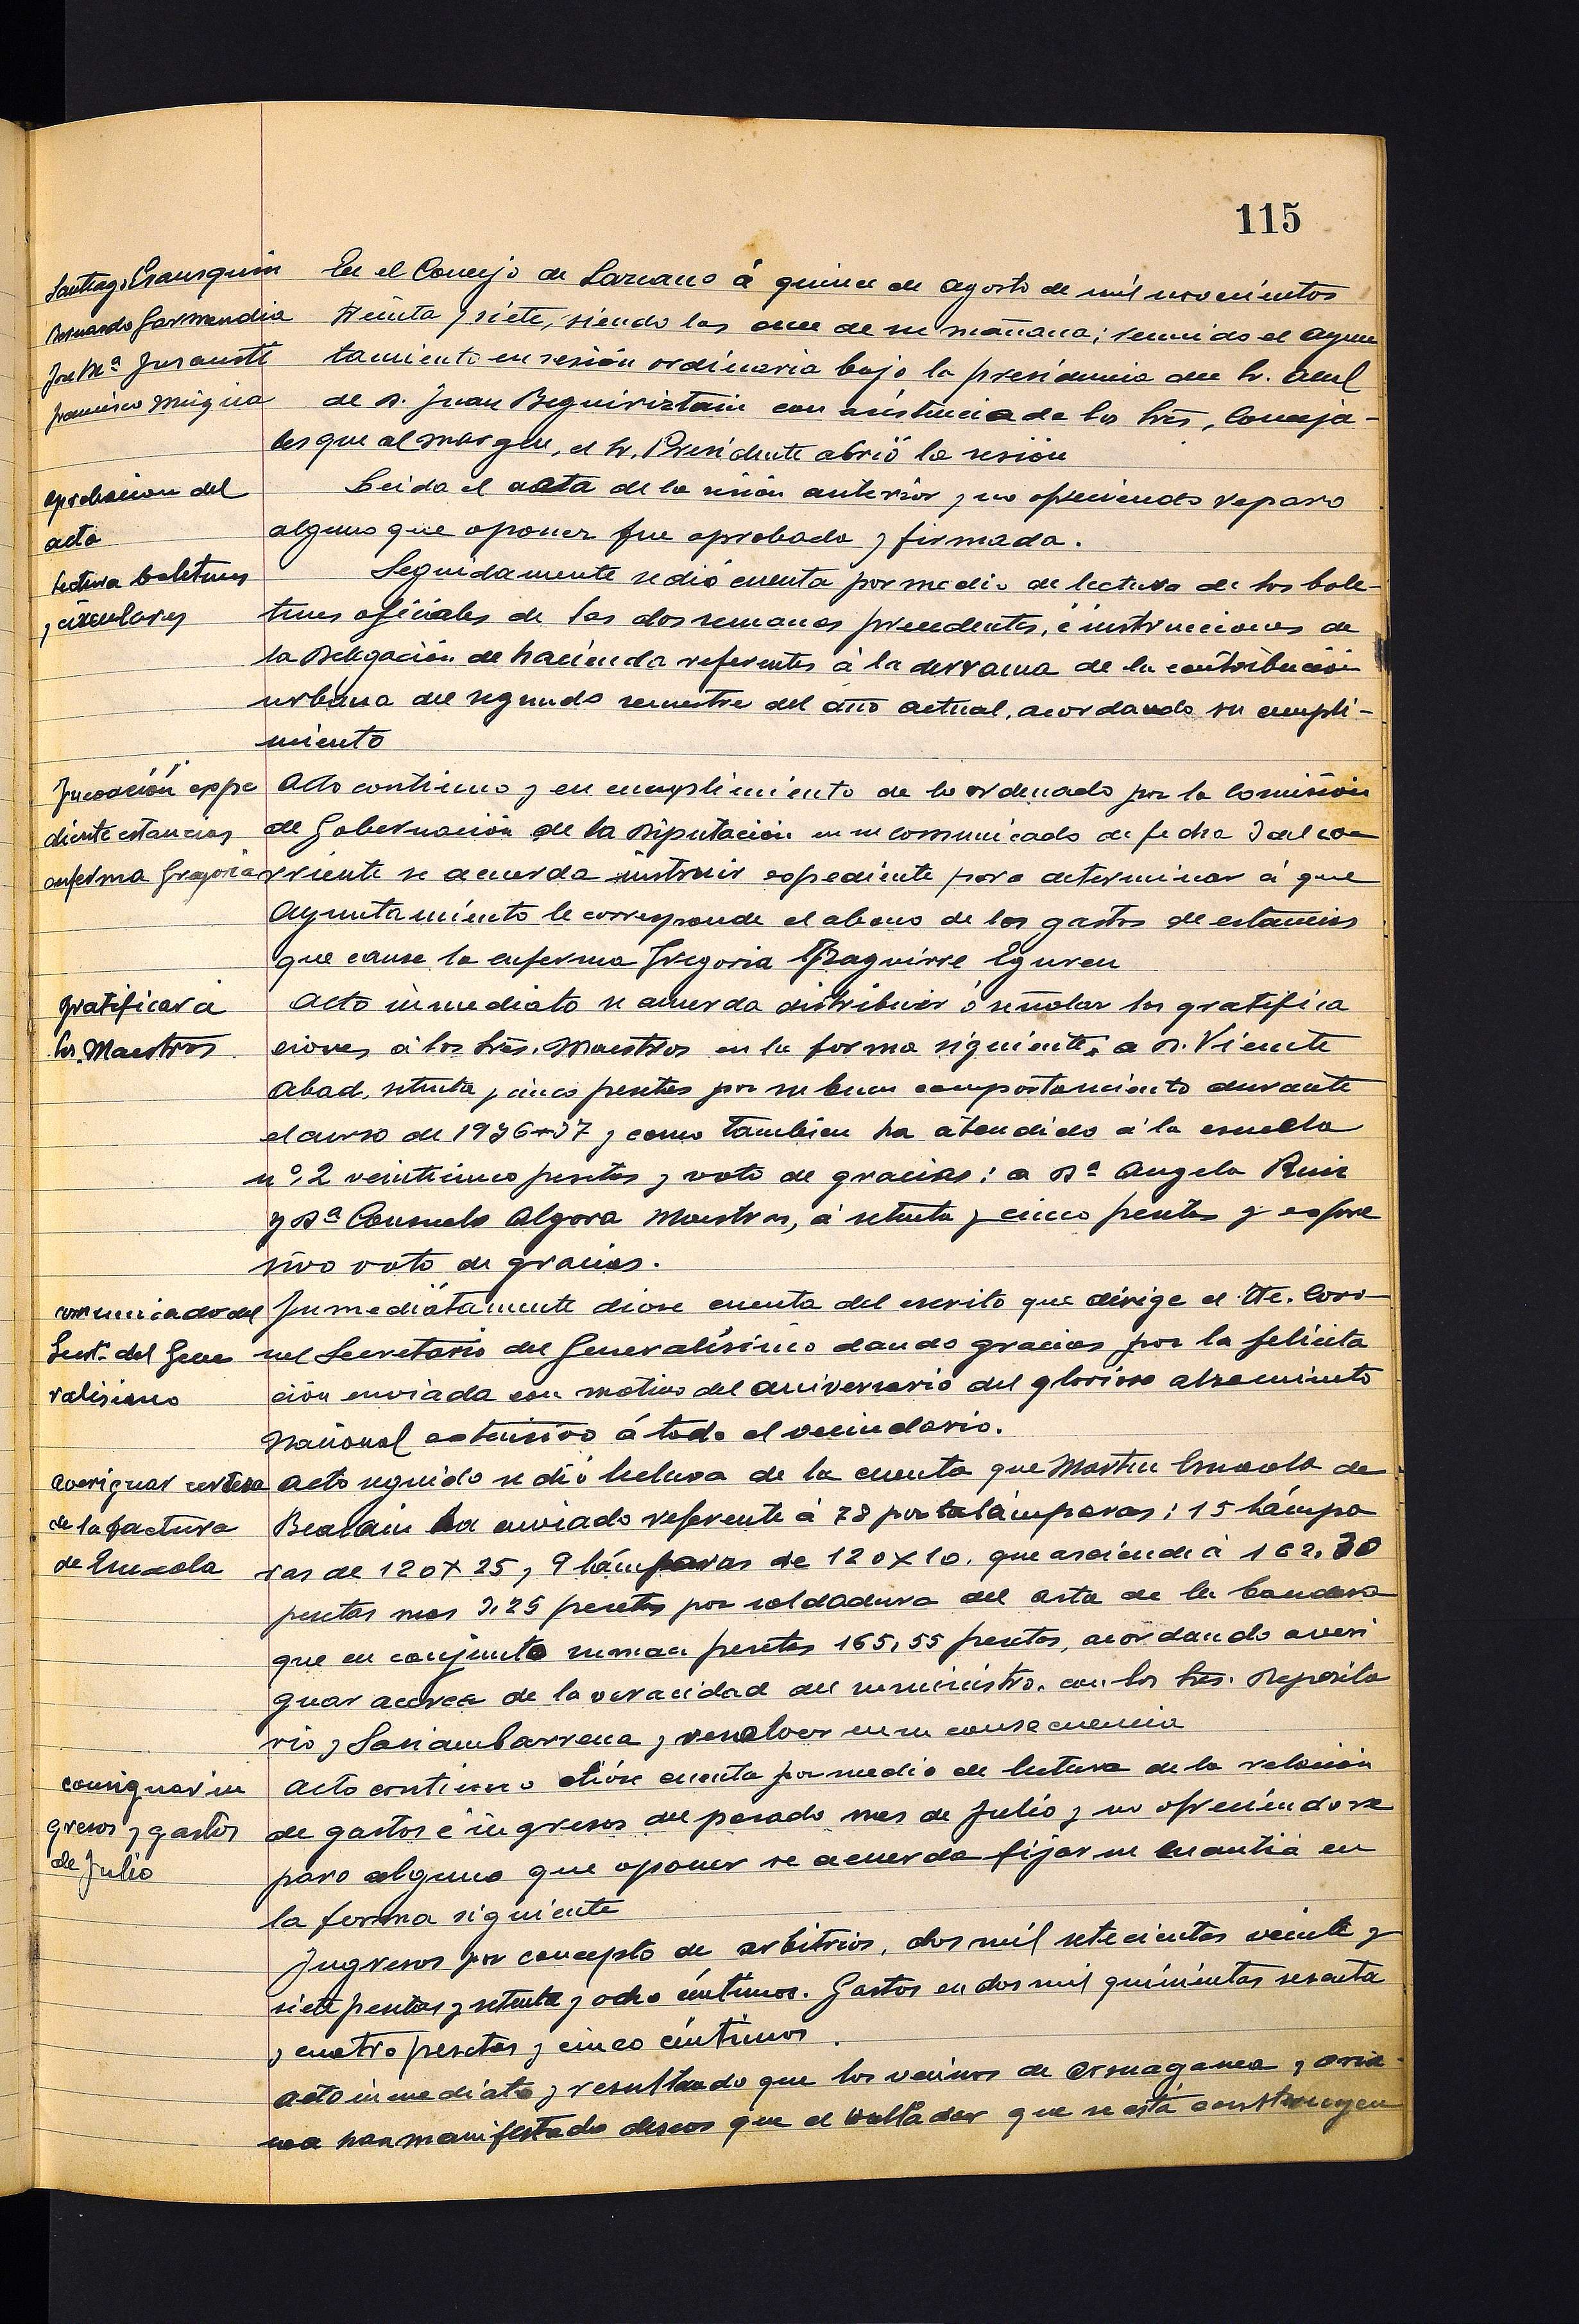 115
Santiago Erausquin
Bernardo Garmendia
José Mª Insausti
Francisco Múgica
En el Concejo de Lazcano á quince de agosto de mil novecientos
treinta y siete, siendo las once de su mañana; reunido el Ayun
tamiento en sesión ordinaria bajo la presidencia del Sr. Alcal
de D. Juan Beguiriztain con asistencia de los Srs, Conceja-
les que al margen, el Sr. Presidente abrió la sesión
aprobacion del
acta
Leida el acta de la sesión anterior y no ofreciendo reparo
alguno que oponer fue aprobada y firmada.
Lectura boletines
y circulares
Seguidamente se dió cuenta por medio de lectura de los bole-
tines oficiales de las dos semanas precedentes, é instrucciones de
la Delegación de hacienda referentes á la derrama de la contribución
urbana del segundo semestre del año actual, acordando su cumpli-
miento
Incoación expe
diente estancias
enferma Gregoria
Acto continuo y en cumplimiento de lo ordenado por la Comisión
de Gobernación de la Diputación en su comunicado de fecha 3 del co
rriente se acuerda instruir expediente para determinar á que
Ayuntamiento le corresponde el abono de los gastos de estancias
que cause la enferma Gregoria Yzaguirre Eguren
gratificar á
los Maestros
Acto inmediato se acuerda distribuir ó señalar las gratifica
ciones á los Srs. Maestros en la forma siguiente: a D. Vicente
Abad, setenta y cinco pesetas por su buen comportamiento durante
el curso de 1936-37 y como tambien ha atendido á la escuela
nº 2 veinticinco pesetas y voto de gracias: a Dª Angela Ruiz
y Dª Consuelo Algora Maestras, á setenta y cinco pesetas y expre
sivo voto de gracias.
comunicado del
Secrt. del Gene
ralisimo
Inmediatamente diose cuenta del escrito que dirige el Tte. Coro-
nel Secretario del Generalísimo dando gracias por la felicita
ción enviada con motivo del aniversario del glorioso alzamiento
Nacional extensivo á todo el vecindario.
averiguar certeza
de la factura
de Urresola
Acto seguido se dió lectura de la cuenta que Martin de
Beasain ha enviado referente á 78 portalámparas: 15 lámpa
ras de 120 x 25, y 9 lámparas de 120 x 10, que asciende á 162,30
pesetas mas 3,25 pesetas por soldadura del asta de la bandera
que en conjunto suman pesetas 165,55 pesetas, acordando averi
guar acerca de la veracidad del suministro, con los Srs. Deposita
rio y Sasiambarrena y resolver en su consecuencia
consignar in
gresos y gastos
de Julio
Acto continuo dióse cuenta por medio de lectura de la relación
de gastos é ingresos del pasado mes de Julio y no ofreciendo re
paro alguno que oponer se acuerda fijar su cuantia en
la forma siguiente
Ingresos por concepto de arbitrios, dos mil setecientas veinte y
siete pesetas y setenta y ocho céntimos. Gastos en dos mil quinientas sesenta
y cuatro pesetas y cinco céntimos.
Acto inmediato y resultando que los vecinos de y
han manifestado deseos que el que se está construyen